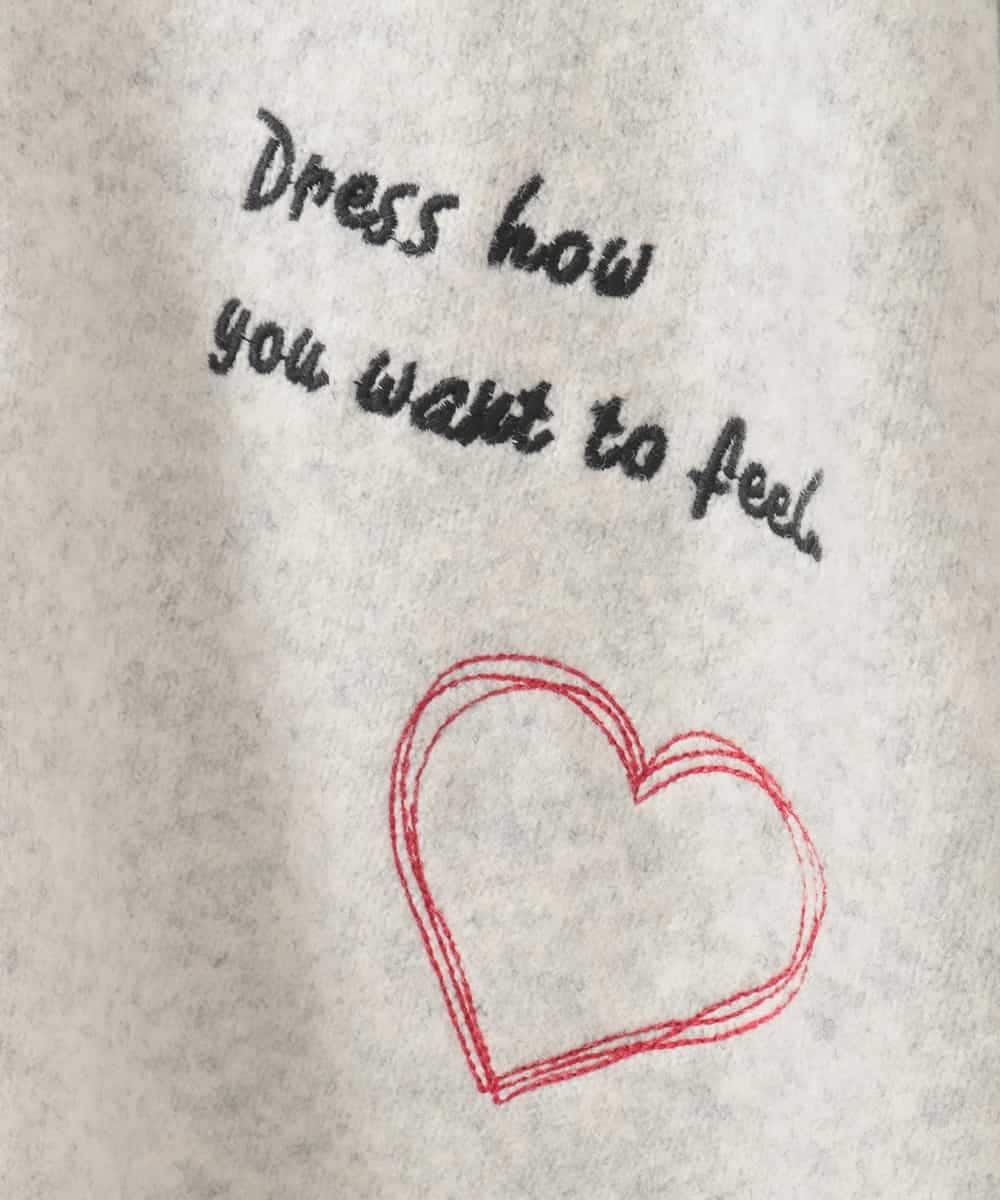 Dress how
you want to feel.